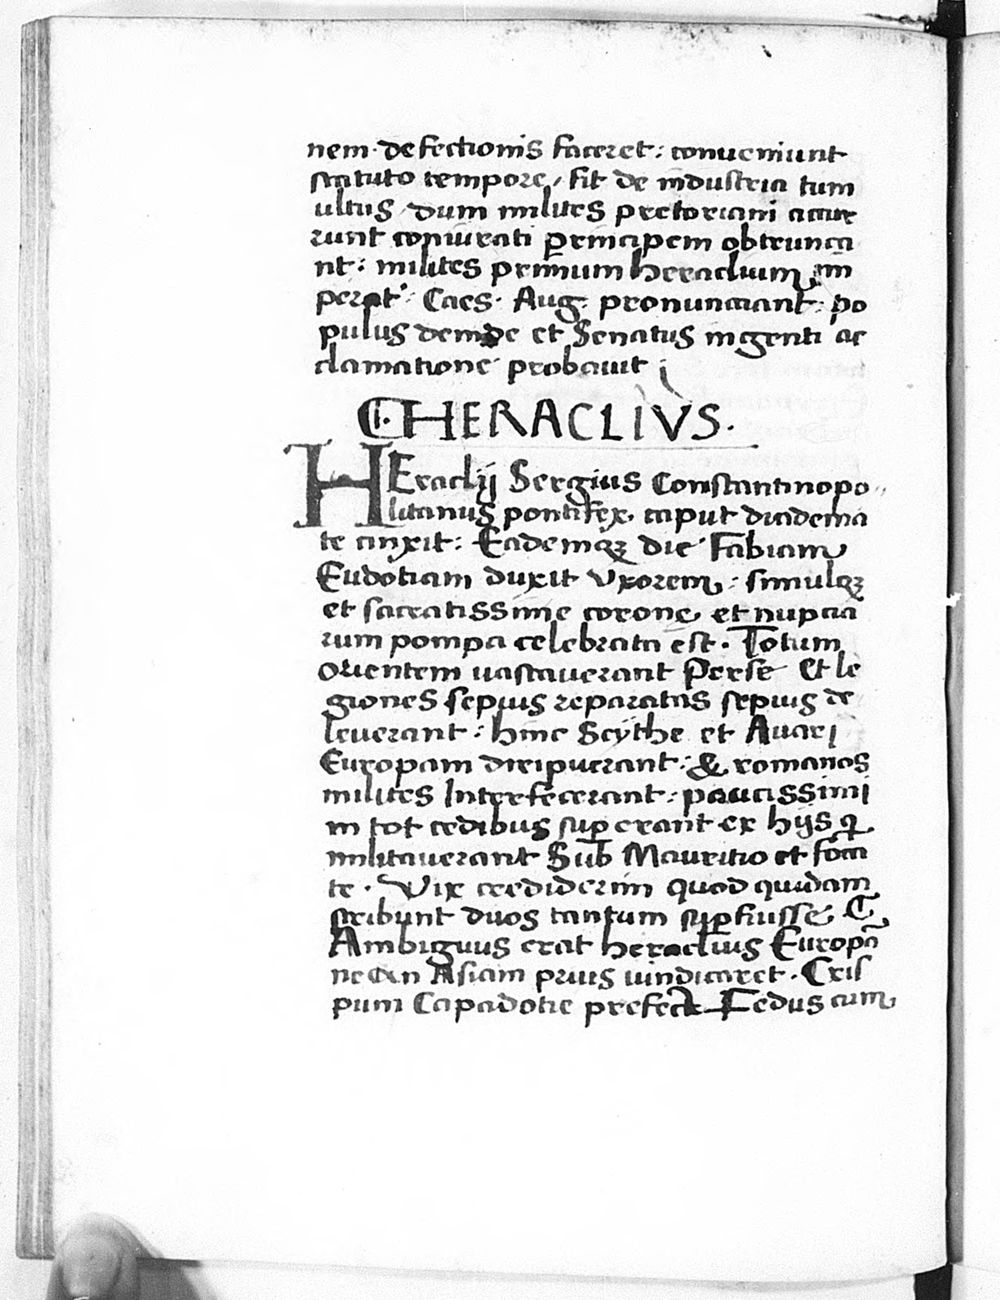 nem defectionis faceret: conueniunt
statuto tempore, fit de industria tum
ultus, dum milites pretoriani accur
runt coniurati principem obtrunca
nt: milites primum heraclium im
perat. Caes. Aug. pronunciant: po
pulus deinde et Senatus ingenti ac
clamatione probauit
HERACLIVS.
HEraclij Sergius Constantinopo
litanus pontifex, caput diadema
te cinxit: Eademqꝫ die Fabiam
Eudotiam duxit vxorem: simulqꝫ
et sacratissime corone, et nupcia
rum pompa celebrata est. Totum
Orientem uastauerant Perse Et le
giones sepius reparatas sepius de
leuerant: hinc Scythe et Auari
Europam diripuerant: & romanos
milites Interfecerant: paucissimi
in tot cedibus superant ex hijs q̄
militauerant Sub Mauritio et foca
te. Vix crediderim quod quidam
scribunt duos tantum superfuisse.
Ambiguus erat heraclius Europā
ne an Asiam prius uindicaret. Cris
pum Capadotie prefectū Fedus cum